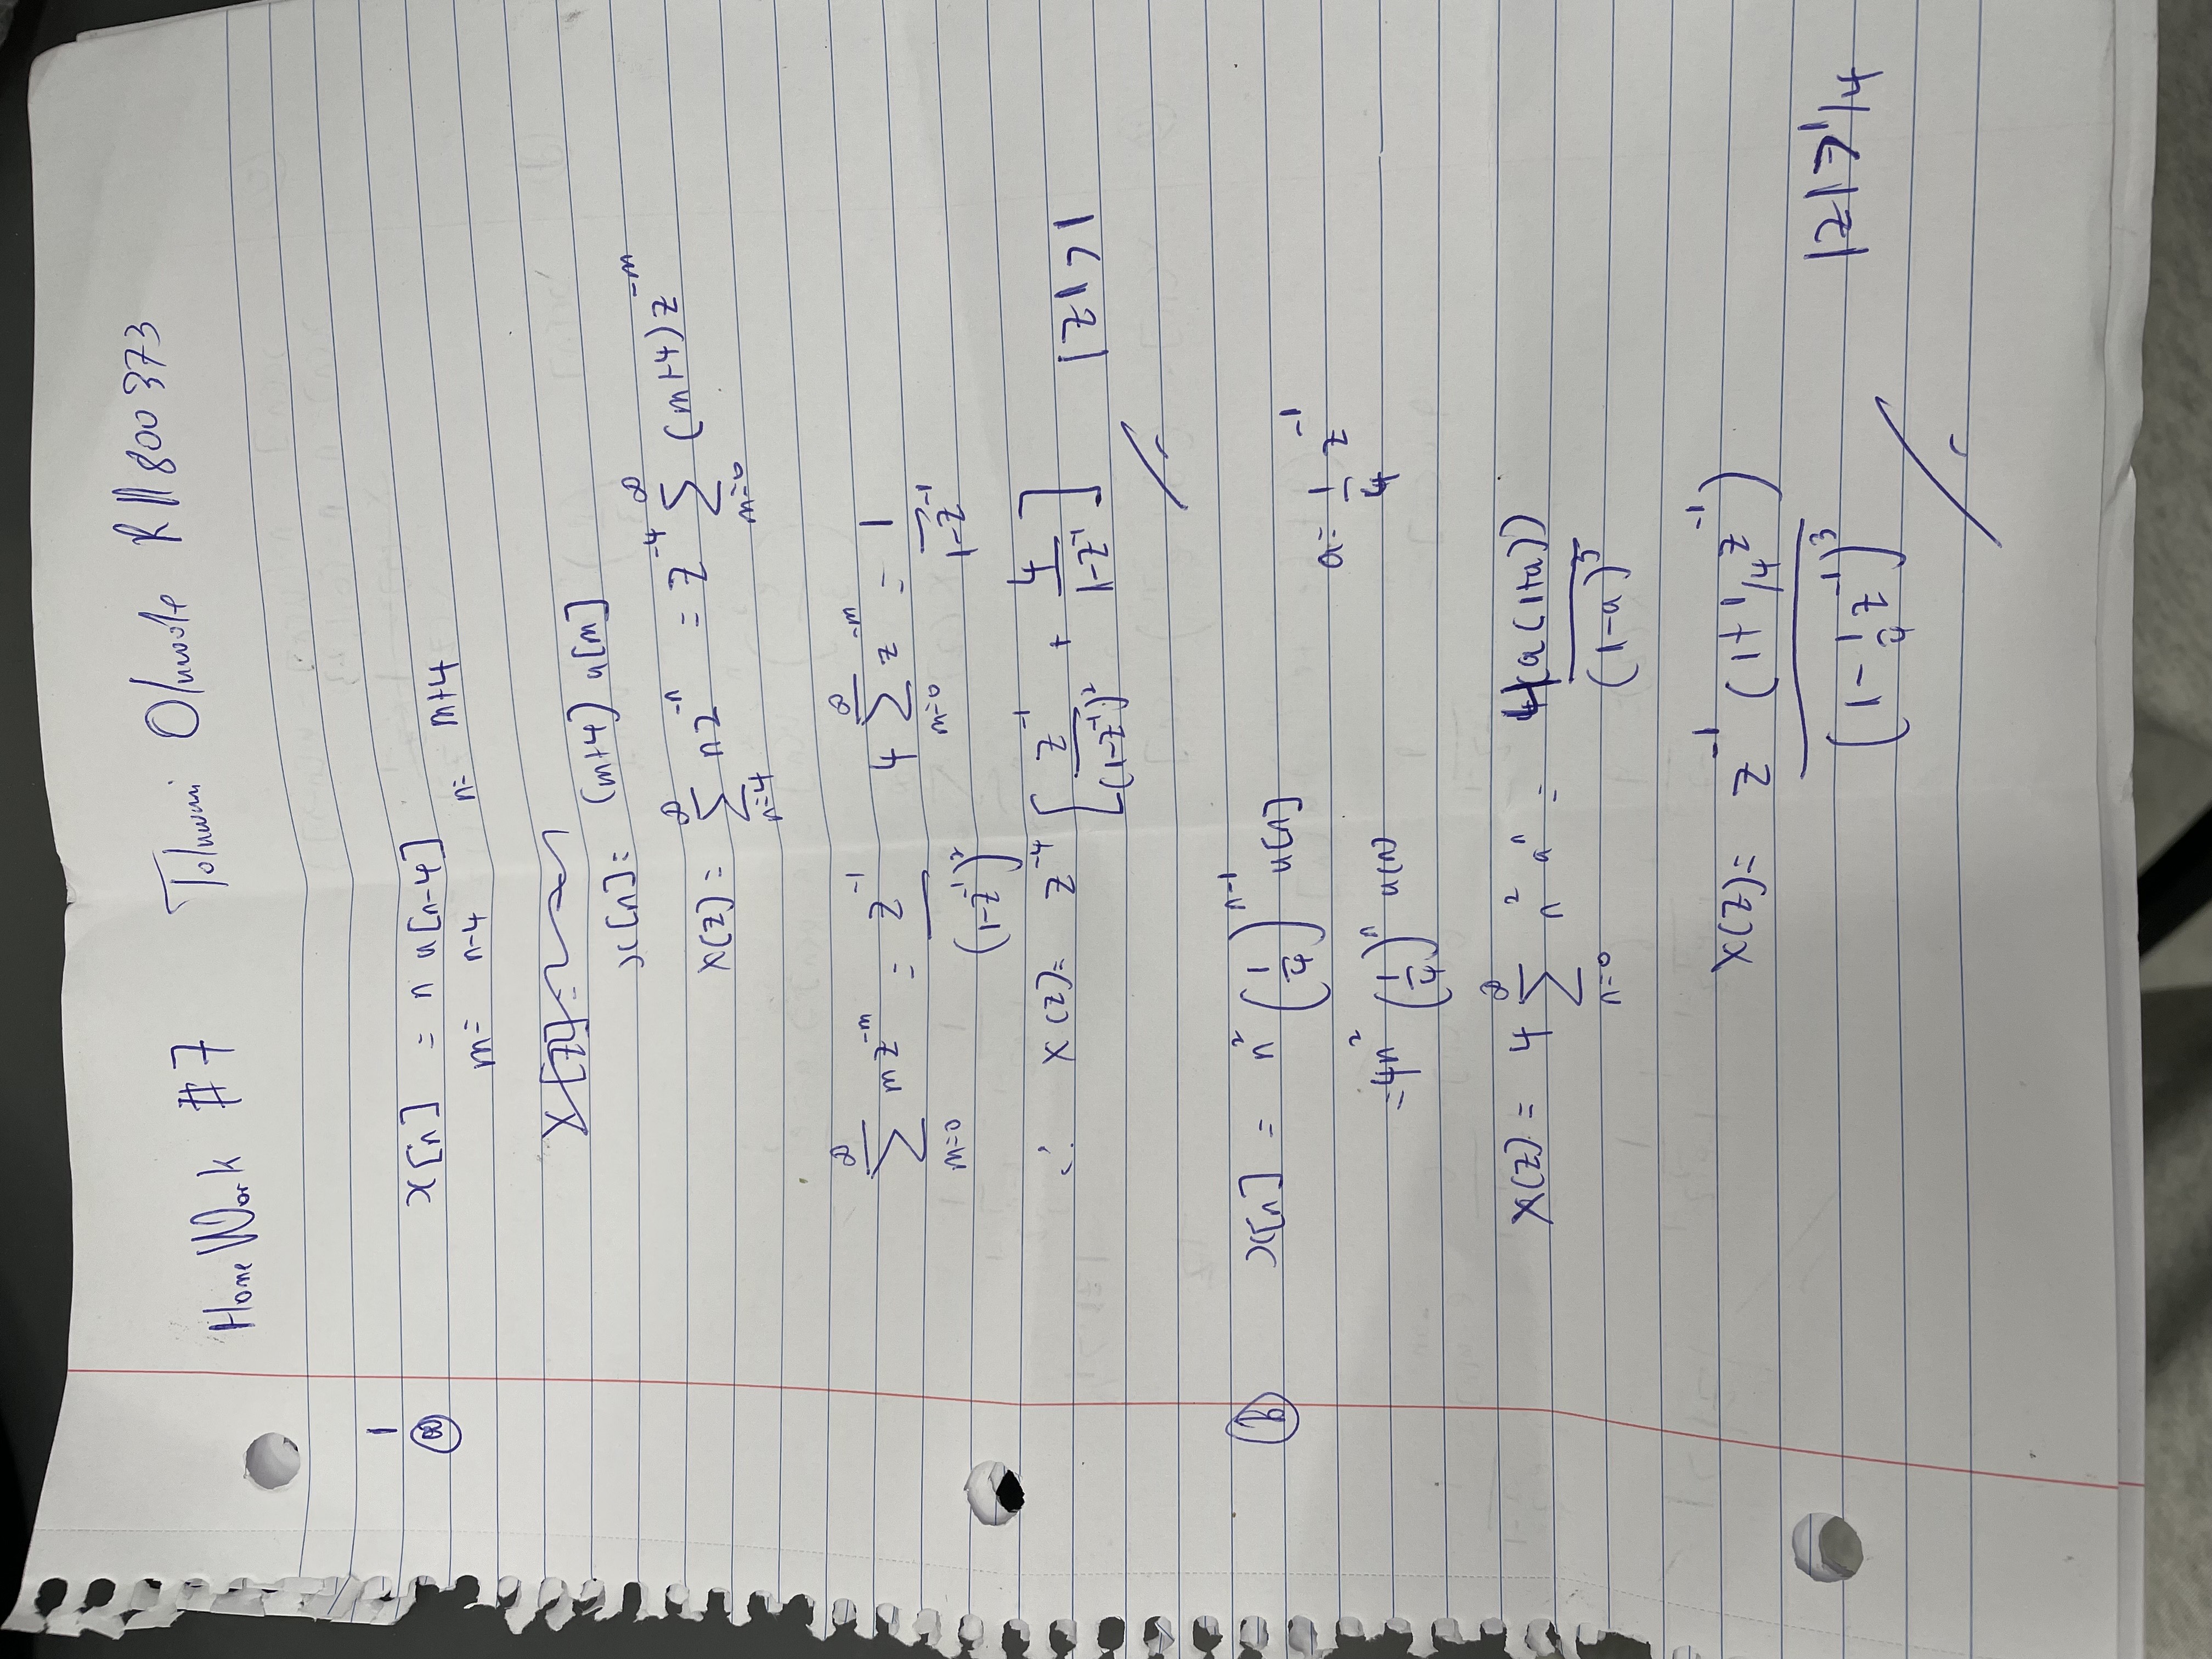 HomeWork #7 Toluwani Oluwole R11800373
1
(a) x[n] = n u[n-4]
m= n-4 n= m+4
X[z]=
x[n]= (m+4) u[m]
X(z) = ∑_{n=4}^{∞} n z^{-n} = z^{-4} ∑_{m=0}^{∞} (m+4) z^{-m}
∑_{m=0}^{∞} m z^{-m} = z^{-1} / (1-z^{-1})^2 4 ∑_{m=0}^{∞} z^{-m} = 1 / (1-z^{-1})
∴ X(z)= z^{-4} [ z^{-1} / (1-z^{-1})^2 + 4 / (1-z^{-1}) ] |z| > 1
(B) x[n] = n^2 (1/4)^{n-1} u[n]
a= 1/4 z^{-1}
=4n^2 (1/4)^n u(n)
X(z) = 4 ∑_{n=0}^{∞} n^2 a^n = 4(a(1+a)) / (1-a)^3
X(z)= z^{-1} (1+1/4 z^{-1}) / (1-1/4 z^{-1})^3 |z| > 1/4